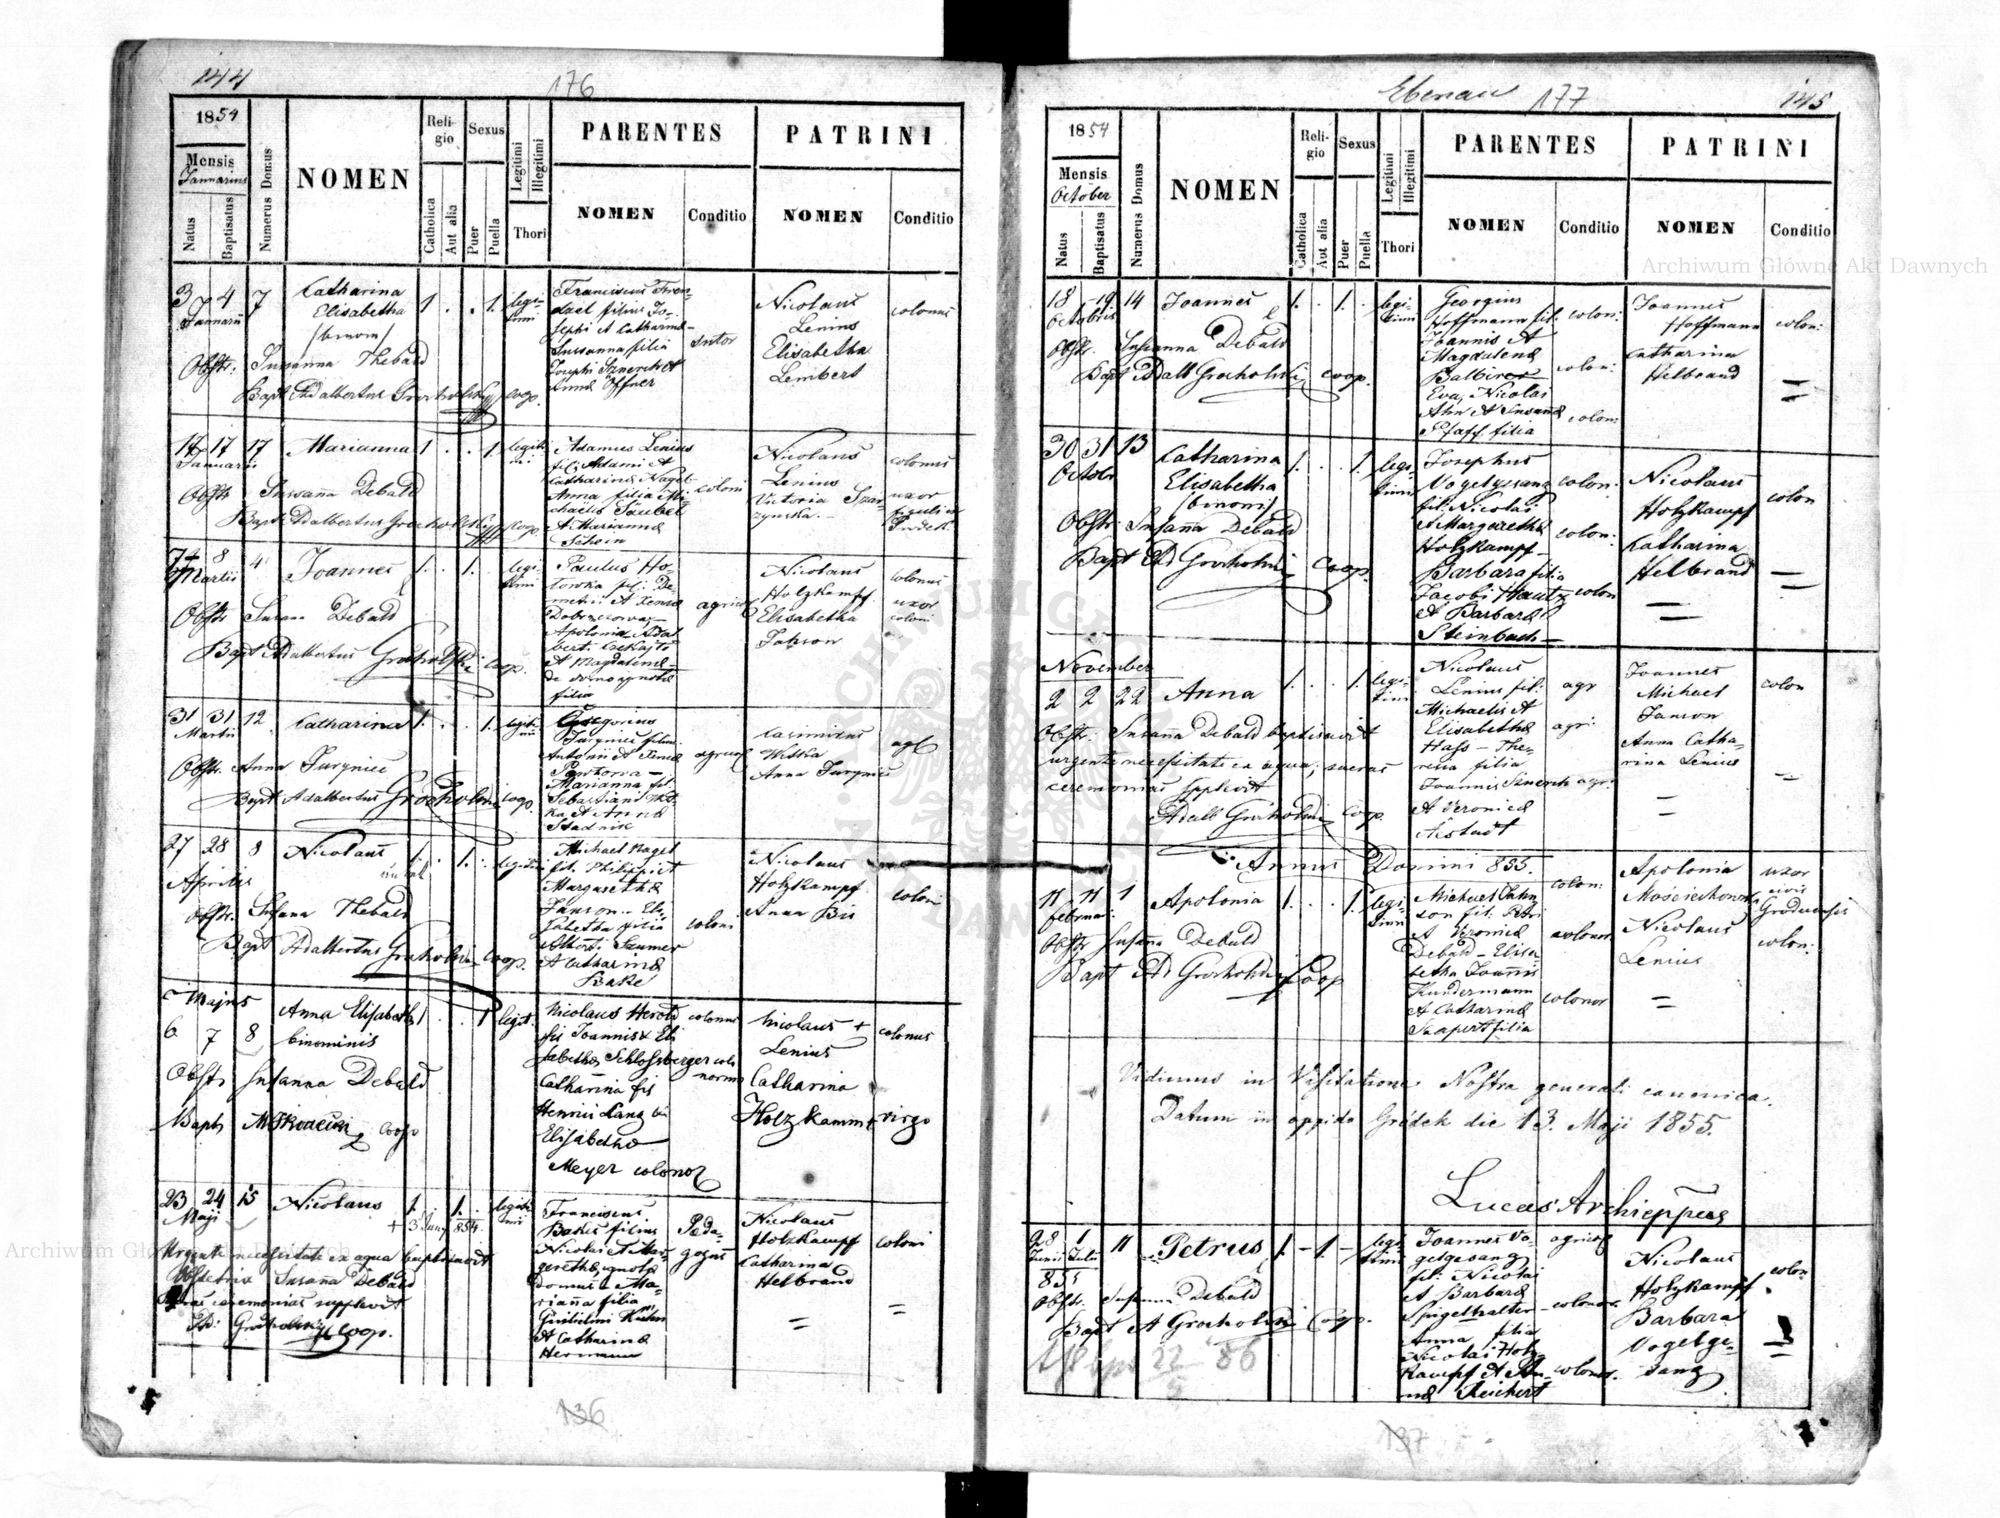 144
176
1854
Mensis
Januarius
Natus
Baptisatus
Numerus Domus
NOMEN
Religio
Catholica
Aut alia
Sexus
Puer
Puella
Legitimi
Illegitimi
Thori
PARENTES
NOMEN
Conditio
PATRINI
NOMEN
Conditio
3 4 7 Catharina
Januarii
Elisabetha
1 . . 1. legitimi
Franciscus
filius Josephi
et Catharina
Susanna filia
Josephi
Anna Offner
sutor
Nicolaus
Lenius
Elisabetha
Lembert
colonus
Obstr. Susanna Thebald
Bapt Adalbertus Grocholski coop.
17 17 17 Marianna
Januarii
1 . . 1 legitimi
Adamus Lenius
fil. Adami et
Catharina Nagel
Anna filia Michaelis
Saubel
et Marianna
Schein
coloni
Nicolaus
Lenius
Victoria
colonus
uxor
figuli in
Grodek
Obstr Susanna Debald
Bapt. Adalbertus Grocholski coop.
7 8 4 Joannes
Martii
1. . 1. legitimi
Paulus
fil: Demetrii
et Xenia
Apolonia
et Magdalena
de domo ignota
filia
agricol
Nicolaus
Holzkampf
Elisabetha
Janson
colonus
uxor
coloni
Obstr Susana Debald
Bapt Adalbertus Grocholski coop.
31 31 12 Catharina
Martii
1. . . 1. legitimi
Gregorius
Juryniec filius
Antonii et
Pawkowa
Marianna fil.
Sebastiani Witka
et Anna
Stadnik
agricol
Casimirus
Witka
Anna Juryniec
agl
Obstr. Anna Juryniec
Bapt Adalbertus Grocholski coop.
27 28 8 Nicolaus
Aprilis
1. . 1. . legitimi
Michael Nagel
fil. Philippi et
Margaretha
Janson Elisabetha
filia
Alberti Szumer
et Catharina
Bake
coloni
Nicolaus
Holzkampf
Anna Bis
coloni
Obstr. Susana Thebald
Bapt Adalbertus Grocholski coop.
Majus
6 7 8 Anna Elisabeth
binominis
1 . . 1 legit.
Nicolaus Herold
fil Joannis et Elisabetha
Schlossberger
Catharina fil
Henrici Lang et
Elisabetha
Meyer colonor
colonus
Nicolaus +
Lenius
Catharina
Holzkamm
colonus
virgo
Obstr Susanna Debald
Bapts M Skoacin coop
23 24 15 Nicolaus
Maji
1. . 1. . legitimi
+ 3 Juny 854.
Franciscus
Bakes filius
Nicolai et Margaretha
ignota
domus et Marianna
filia
Guilielmi Kuhn
et Catharina
Hermann
Pedagogus
Nicolaus
Holzkampf
Catharina
Helbrand
coloni
Urgente necessitate ex aqua baptisavit
Obstetrix Susana Debald
Sacras ceremonias supplevit
Ad: Grocholski Coop.
136
Ebenau
177
145
1854
Mensis
October
Natus
Baptisatus
Numerus Domus
NOMEN
Religio
Catholica
Aut alia
Sexus
Puer
Puella
Legitimi
Illegitimi
Thori
PARENTES
NOMEN
Conditio
PATRINI
NOMEN
Conditio
18 19 14 Joannes
Octobris
1. . 1. . legitimi
Georgius
Hoffmann fil.
Joannis et
Magdalena
Balbirer
Eva, Nicolai
Ahn et Susana
Pfaff filia
colon:
colon:
colon:
Joannes
Hoffmann
Catharina
Helbrand
colon:
Obstr. Susanna Debald
Bapt Adalb Grocholski coop.
30 31 13 Catharina
Octobr
Elisabetha
(binomi)
1. . . 1. legitimi
Josephus
Vogelgesang
fil: Nicolai
et Margaretha
Holzkampf
Barbara filia
Jacobi Hautz
et Barbara
Steinbach
colon:
colon:
colon
Nicolaus
Holzkampf
Catharina
Helbrand
colon
Obstr Susana Debald
Bapt Ad Grocholski Coop.
November
2 2 22 Anna
1. . . 1. legitimi
Nicolaus
Lenius fil:
Michaelis et
Elisabetha
Hass Theresia
filia
Joannis Sznerch
et Veronica
Nistadt
agr
agri:
agri
Joannes
Michael
Janson
Anna Catharina
Lenius
colon
Obstr. Susana Debald baptisavit
urgente necessitate ex aqua, sacras
ceremonias supplevit
Adalb Grocholski Coop.
Annus Domini 855.
11 11 1 Apolonia
februar:
1. . . 1. legitimi
Michael Jahnson
fil. Petri
et Veronica
Debald Elisabetha
Joannis
Kundermann
et Catharina
Saapert filia
colon:
colonor.
colonor
Apolonia
Mościechowska
Nicolaus
Lenius
uxor
civis
Grodecensis
colon:
Obstr Susana Debald
Bapt Ad Grocholski Coop
Vidimus in Visitatione Nostra generali canonica.
Datum in oppido Gródek die 13. Maji 1855.
Lucas Archieppus
28 1 11 Petrus
Junii Julii
855
1. - 1. - legitimi
Joannes Vogelgesang
fil: Nicolai
et Barbara
Spigelhalter
Anna filia
Nicolai Holzkampf
et Anna
Reichert
agricol
colonor.
colonor.
Nicolaus
Holzkampf
Barbara
Vogelgesang
colon
Obstr. Susanna Debald
Bapt A Grocholski Coop.
137
Archiwum Główne Akt Dawnych
Archiwum Główne Akt Dawnych